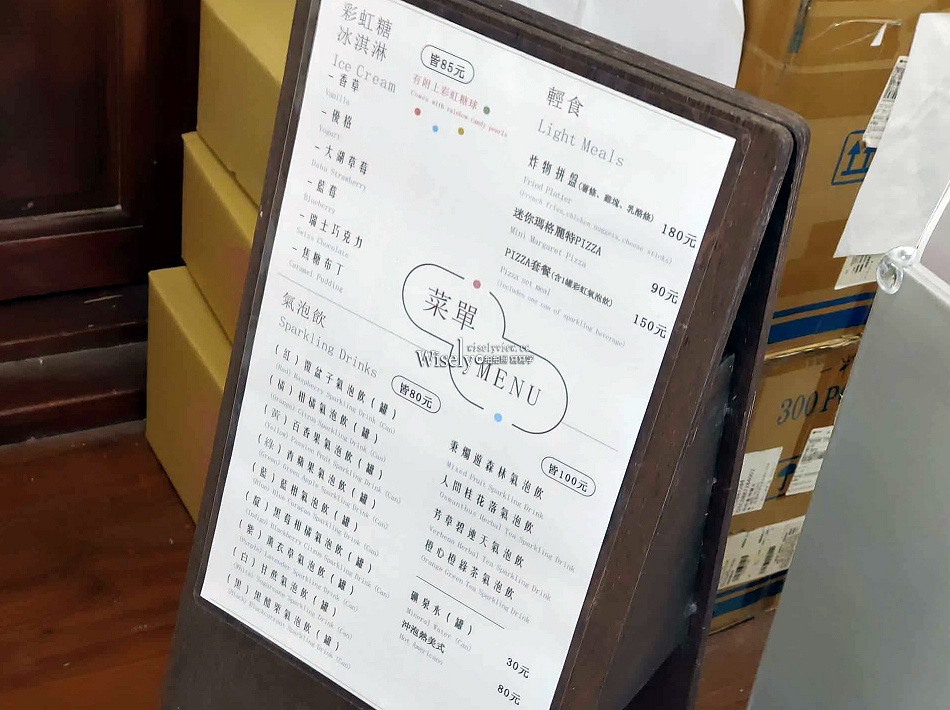 彩虹糖
冰淇淋
Ice Cream
皆85元
有附上彩虹糖球
Comes with rainbow candy pearls
－香草
Vanilla
－優格
Yogurt
－大湖草莓
Dahu Strawberry
－藍莓
Blueberry
－瑞士巧克力
Swiss Chocolate
－焦糖布丁
Caramel Pudding
輕食
Light Meals
炸物拼盤(薯條、雞塊、乳酪條)
Fried Platter
(French fries,chicken nuggets,cheese sticks)
180元
迷你瑪格麗特PIZZA
Mini Margaret Pizza
90元
PIZZA套餐(含1罐彩虹氣泡飲)
Pizza set meal
(Includes one can of sparkling beverage)
150元
菜單
MENU
wiselyview.cc
Wisely
氣泡飲
Sparkling Drinks
皆80元
(紅)覆盆子氣泡飲(罐)
(Red) Raspberry Sparkling Drink (Can)
(橘)柑橘氣泡飲(罐)
(Orange) Citrus Sparkling Drink (Can)
(黃)百香果氣泡飲(罐)
(Yellow) Passion Fruit Sparkling Drink (Can)
(綠)青蘋果氣泡飲(罐)
(Green) Green Apple Sparkling Drink (Can)
(藍)藍柑氣泡飲(罐)
(Blue) Blue Curacao Sparkling Drink (Can)
(靛)黑莓柑橘氣泡飲(罐)
(Indigo) Blackberry Citrus Sparkling Drink (Can)
(紫)薰衣草氣泡飲(罐)
(Purple) Lavender Sparkling Drink (Can)
(白)甘蔗氣泡飲(罐)
(White) Sugarcane Sparkling Drink (Can)
(黑)黑醋栗氣泡飲(罐)
(Black) Blackcurrant Sparkling Drink (Can)
皆100元
秉燭遊森林氣泡飲
Mixed Fruit Sparkling Drink
人間桂花落氣泡飲
Osmanthus Herbal Tea Sparkling Drink
芳草碧連天氣泡飲
Verbena Herbal Tea Sparkling Drink
橙心橙綠茶氣泡飲
Orange Green Tea Sparkling Drink
礦泉水(罐)
Mineral Water (Can)
30元
沖泡熱美式
Hot Americano
80元
300 PS